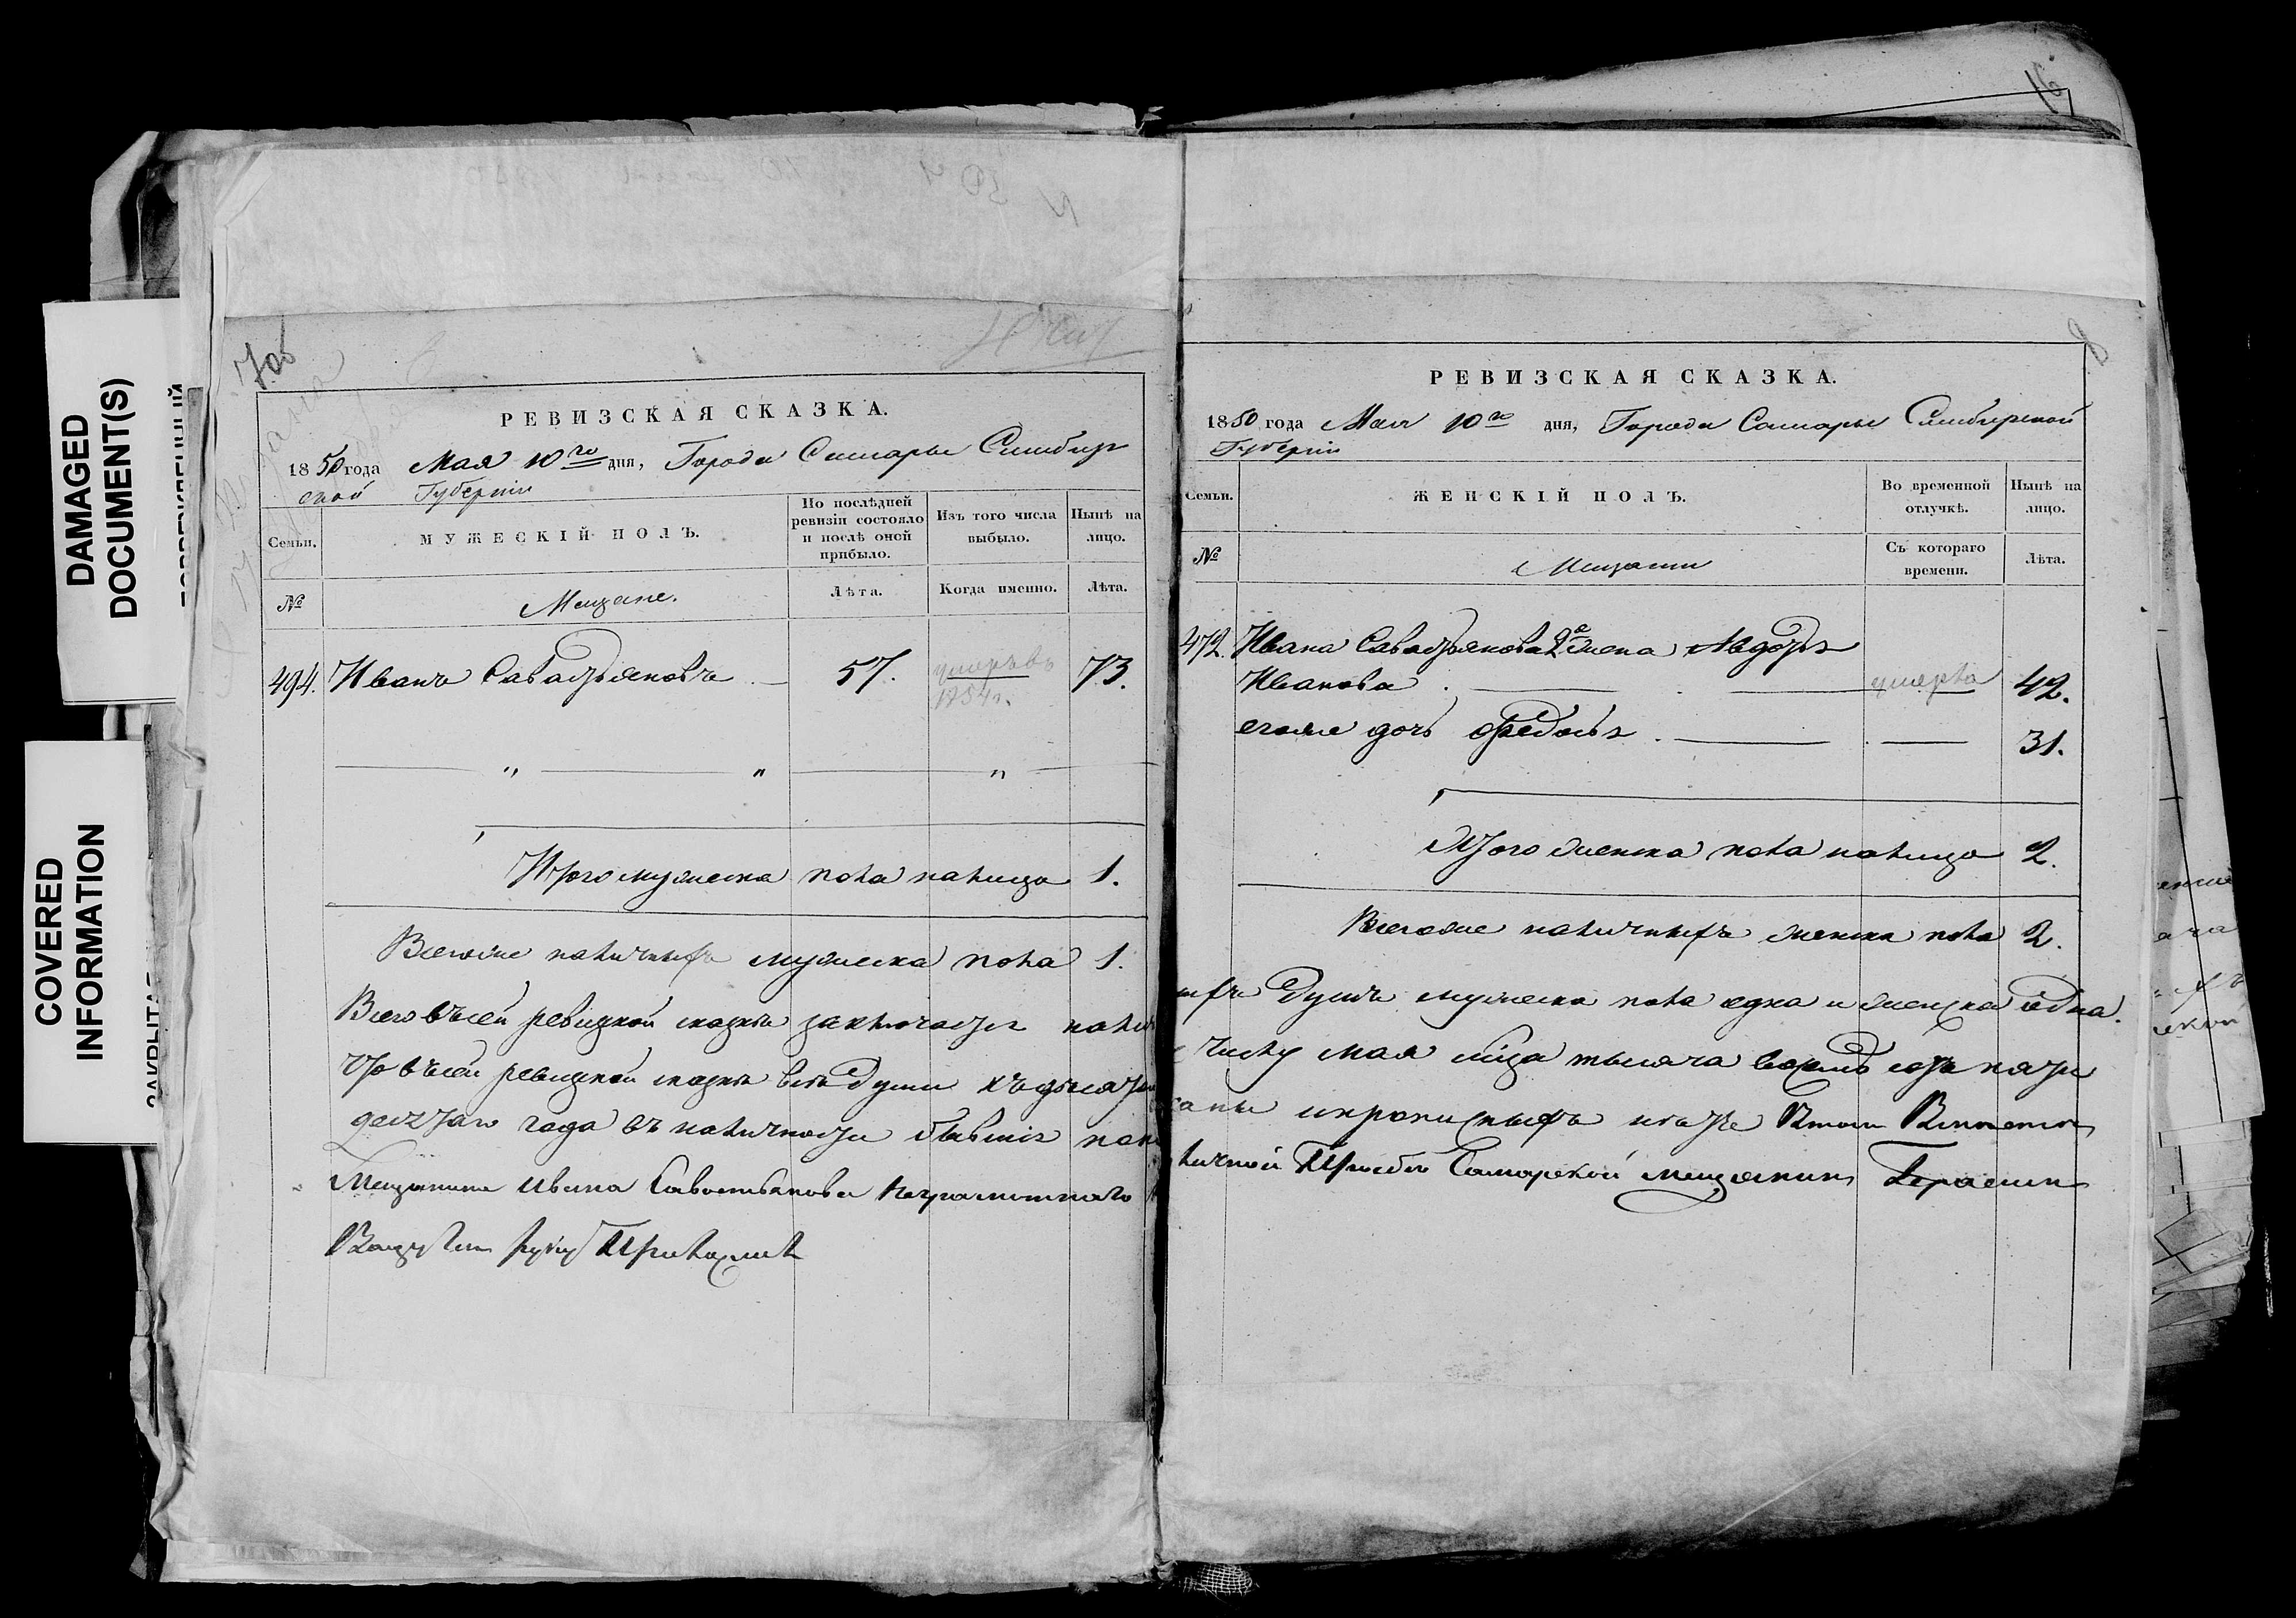 DAMAGED
DOCUMENT(S)
COVERED
INFORMATION
РЕВИЗСКАЯ СКАЗКА.
1850 года Мая 10го дня, Города Самары Симбир
ской Губернiи
Семьи.
МУЖЕСКIЙ ПОЛЪ.
По послѣдней
ревизiи состояло
и послѣ оной
прибыло.
Изъ того числа
выбыло.
Нынѣ на
лицо.
№
Мещане.
Лѣта.
Когда именно.
Лѣта.
494. Иванъ Савастьяновъ — 57. умеръ въ 73.
1854 г.
Итого мужеска пола налицо 1.
Всегоже наличныхъ мужеска пола 1.
Всего въ сей ревизкой сказке заключается налич
что въ сей ревизкой сказке все души къ десятому
десятаго года въ наличности бывшiя пока
Мещанина Ивана Савостьянова неграмотного
руку Приложилъ
РЕВИЗСКАЯ СКАЗКА.
1850 года Мая 10го дня, Города Самары Симбирской
Губернiи
Семьи.
ЖЕНСКIЙ ПОЛЪ.
Во временной
отлучкѣ.
Нынѣ на
лицо.
№
Мещанки
Съ котораго
времени.
Лѣта.
472. Ивана Савастьянова 2я жена Авдотья
Иванова — умерла 42.
егоже дочь Федосья — 31.
Итого женска пола налицо 2.
Всегоже наличныхъ женска пола 2.
ыхъ душъ мужеска пола одна и женска одна.
числу мая мца тысяча восемь сотъ пяти
заны и прописныхъ нетъ
личной Прозбе Самарской мещанинъ Герасимъ